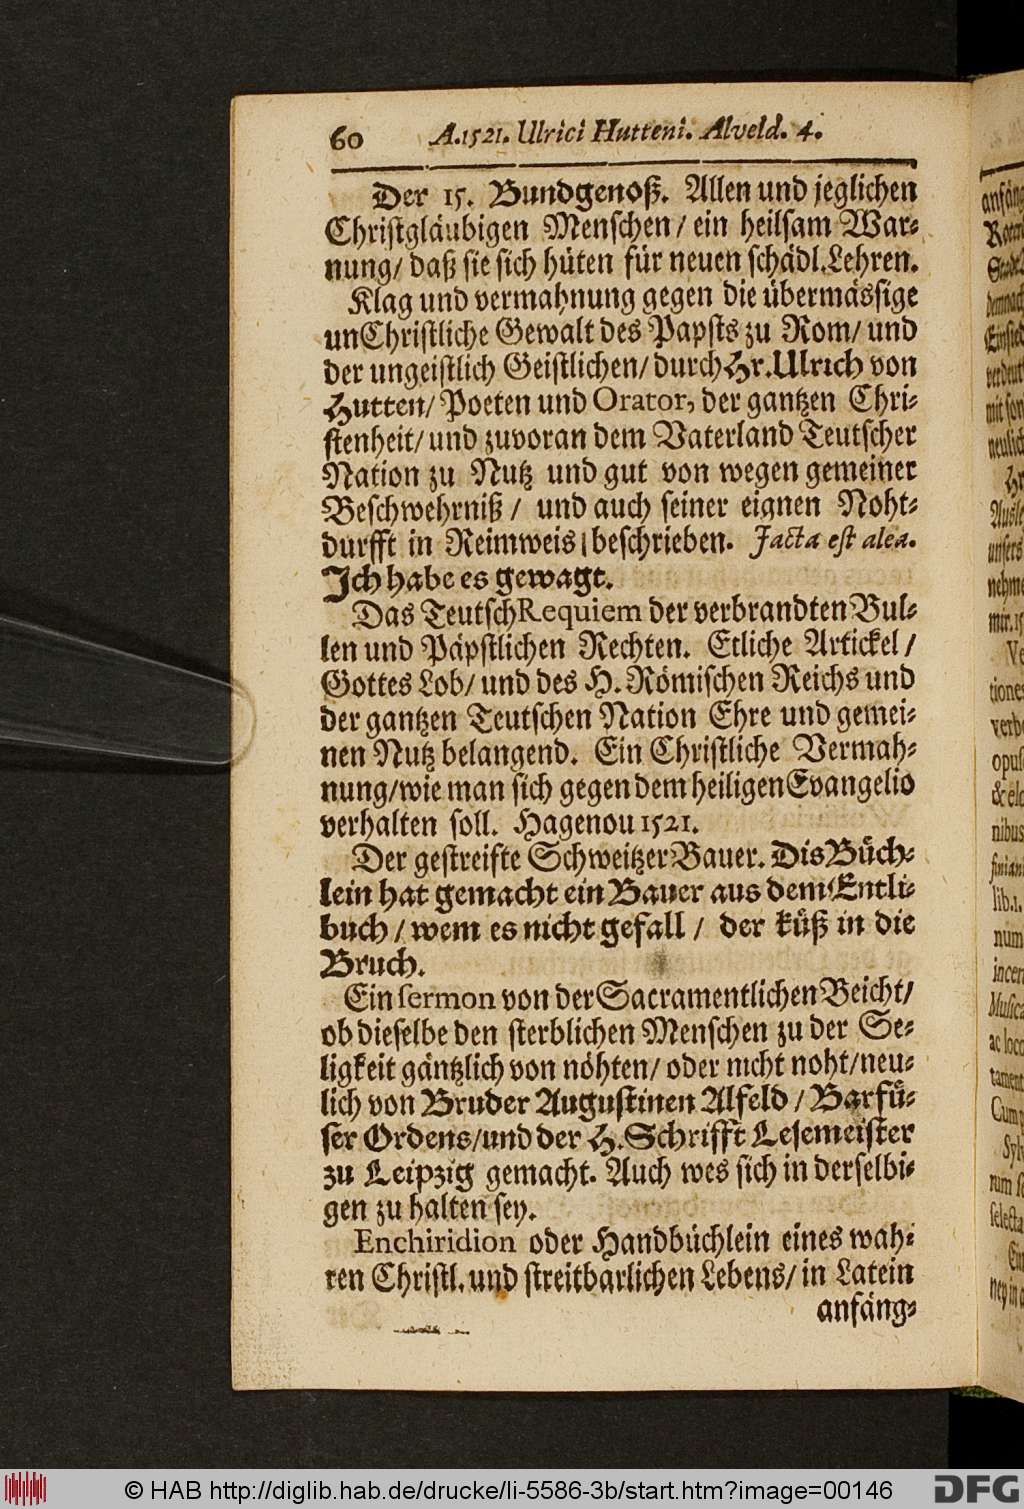 60 A.1521. Ulrici Hutteni. Alveld. 4.
Der 15. Bundgenoß. Allen und jeglichen
Christgläubigen Menschen/ ein heilsam War-
nung/ daß sie sich hüten für neuen schädl. Lehren.
Klag und vermahnung gegen die übermässige
unChristliche Gewalt des Papsts zu Rom/ und
der ungeistlich Geistlichen/ durch Hr. Ulrich von
Hutten/ Poeten und Orator, der gantzen Chri-
stenheit/ und zuvoran dem Vaterland Teutscher
Nation zu Nutz und gut von wegen gemeiner
Beschwehrniß / und auch seiner eignen Noht-
durfft in Reimweis beschrieben. Jacta est alea.
Ich habe es gewagt.
Das Teutsch Requiem der verbrandten Bul-
len und Päpstlichen Rechten. Etliche Artickel /
Gottes Lob/ und des H. Römischen Reichs und
der gantzen Teutschen Nation Ehre und gemei-
nen Nutz belangend. Ein Christliche Vermah-
nung/ wie man sich gegen dem heiligen Evangelio
verhalten soll. Hagenou 1521.
Der gestreifte Schweitzer Bauer. Dis Büch-
lein hat gemacht ein Bauer aus dem Entli-
buch / wem es nicht gefall / der küß in die
Bruch.
Ein sermon von der Sacramentlichen Beicht/
ob dieselbe den sterblichen Menschen zu der Se-
ligkeit gäntzlich von nöhten/ oder nicht noht/ neu-
lich von Bruder Augustinen Alfeld / Barfü-
ser Ordens/ und der H. Schrifft Lesemeister
zu Leipzig gemacht. Auch wes sich in derselbi-
gen zu halten sey.
Enchiridion oder Handbüchlein eines wah-
ren Christl. und streitbarlichen Lebens/ in Latein
anfäng-
© HAB http://diglib.hab.de/drucke/li-5586-3b/start.htm?image=00146
DFG